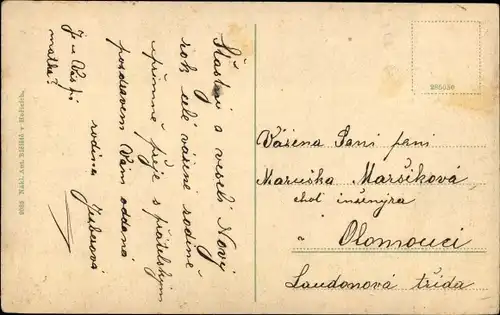 Šťastný a veselý Nový
rok celé vážené rodině
upřímně přeje s přátelským
pozdravem Vám oddaná
rodina
Je u Vás
matka?
2052 Nakl. Ant. v Hořicích.
285036
Vážená Paní paní
Maruška Maršíková
choť inženýra
v Olomouci
Laudonová třída